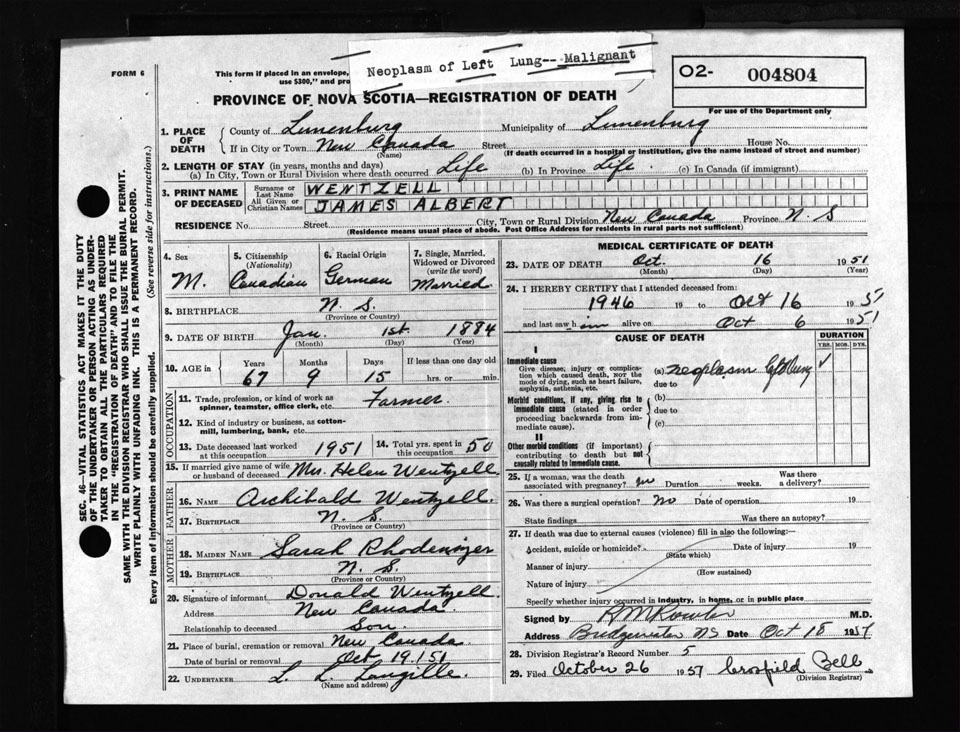 Neoplasm of Left Lung-- Malignant
FORM 6
This form if placed in an envelope,
use $300," and pro
O2- 004804
For use of the Department only
PROVINCE OF NOVA SCOTIA—REGISTRATION OF DEATH
1. PLACE OF DEATH
County of Lunenburg Municipality of Lunenburg
If in City or Town New Canada Street House No.
(Name) (If death occurred in a hospital or institution, give the name instead of street and number)
2. LENGTH OF STAY (in years, months and days)
(a) In City, Town or Rural Division where death occurred Life (b) In Province Life (c) In Canada (if immigrant)
3. PRINT NAME OF DECEASED
Surname or Last Name WENTZELL
All Given or Christian Names JAMES ALBERT
RESIDENCE No. Street City, Town or Rural Division New Canada Province N S
(Residence means usual place of abode. Post Office Address for residents in rural parts not sufficient)
4. Sex
M.
5. Citizenship
(Nationality)
Canadian
6. Racial Origin
German
7. Single, Married, Widowed or Divorced
(write the word)
Married
8. BIRTHPLACE N. S.
(Province or Country)
9. DATE OF BIRTH Jan. 1st. 1884
(Month) (Day) (Year)
10. AGE in Years Months Days If less than one day old
67 9 15 hrs. or min.
OCCUPATION
11. Trade, profession, or kind of work as
spinner, teamster, office clerk, etc. Farmer.
12. Kind of industry or business, as cotton-
mill, lumbering, bank, etc.
13. Date deceased last worked
at this occupation 1951
14. Total yrs. spent in
this occupation 50
15. If married give name of wife
or husband of deceased Mrs. Helen Wentzell
FATHER
16. NAME Archibald Wentzell.
17. BIRTHPLACE N. S.
(Province or Country)
MOTHER
18. MAIDEN NAME Sarah Rhodenizer
19. BIRTHPLACE N. S.
(Province or Country)
20. Signature of informant Donald Wentzell
Address New Canada.
Relationship to deceased Son.
21. Place of burial, cremation or removal New Canada.
Date of burial or removal Oct 19.1951
22. UNDERTAKER L. L. Langille.
(Name and address)
MEDICAL CERTIFICATE OF DEATH
23. DATE OF DEATH Oct. 16 1951
(Month) (Day) (Year)
24. I HEREBY CERTIFY that I attended deceased from:
1946 19 to Oct 16 1951
and last saw him alive on Oct 6 1951
CAUSE OF DEATH
DURATION
YRS. MOS. DYS.
I
Immediate cause
Give disease, injury or complica-
tion which caused death, NOT the
mode of dying, such as heart failure,
asphyxia, asthenia, etc.
(a) neoplasm left lung ✓
due to
Morbid conditions, if any, giving rise to
immediate cause (stated in order
proceeding backwards from im-
mediate cause).
(b)
due to
(c)
II
Other morbid conditions (if important)
contributing to death but not
causally related to immediate cause.
25. If a woman, was the death
associated with pregnancy? no Duration weeks. Was there
a delivery?
26. Was there a surgical operation? no Date of operation 19
State findings Was there an autopsy?
27. If death was due to external causes (violence) fill in also the following:
Accident, suicide or homicide? Date of injury 19
(State which)
Manner of injury
(How sustained)
Nature of injury
Specify whether injury occurred in industry, in home, or in public place
Signed by M.D.
Address Bridgewater NS Date Oct 18 1951
28. Division Registrar's Record Number 5
29. Filed October 26 1951 Crosfield Bell
(Division Registrar)
SEC. 46—VITAL STATISTICS ACT MAKES IT THE DUTY
OF THE UNDERTAKER OR PERSON ACTING AS UNDER-
TAKER TO OBTAIN ALL THE PARTICULARS REQUIRED
IN THE "REGISTRATION OF DEATH" AND TO FILE THE
SAME WITH THE DIVISION REGISTRAR WHO SHALL ISSUE THE BURIAL PERMIT.
WRITE PLAINLY WITH UNFADING INK. THIS IS A PERMANENT RECORD.
Every item of information should be carefully supplied. (See reverse side for instructions.)